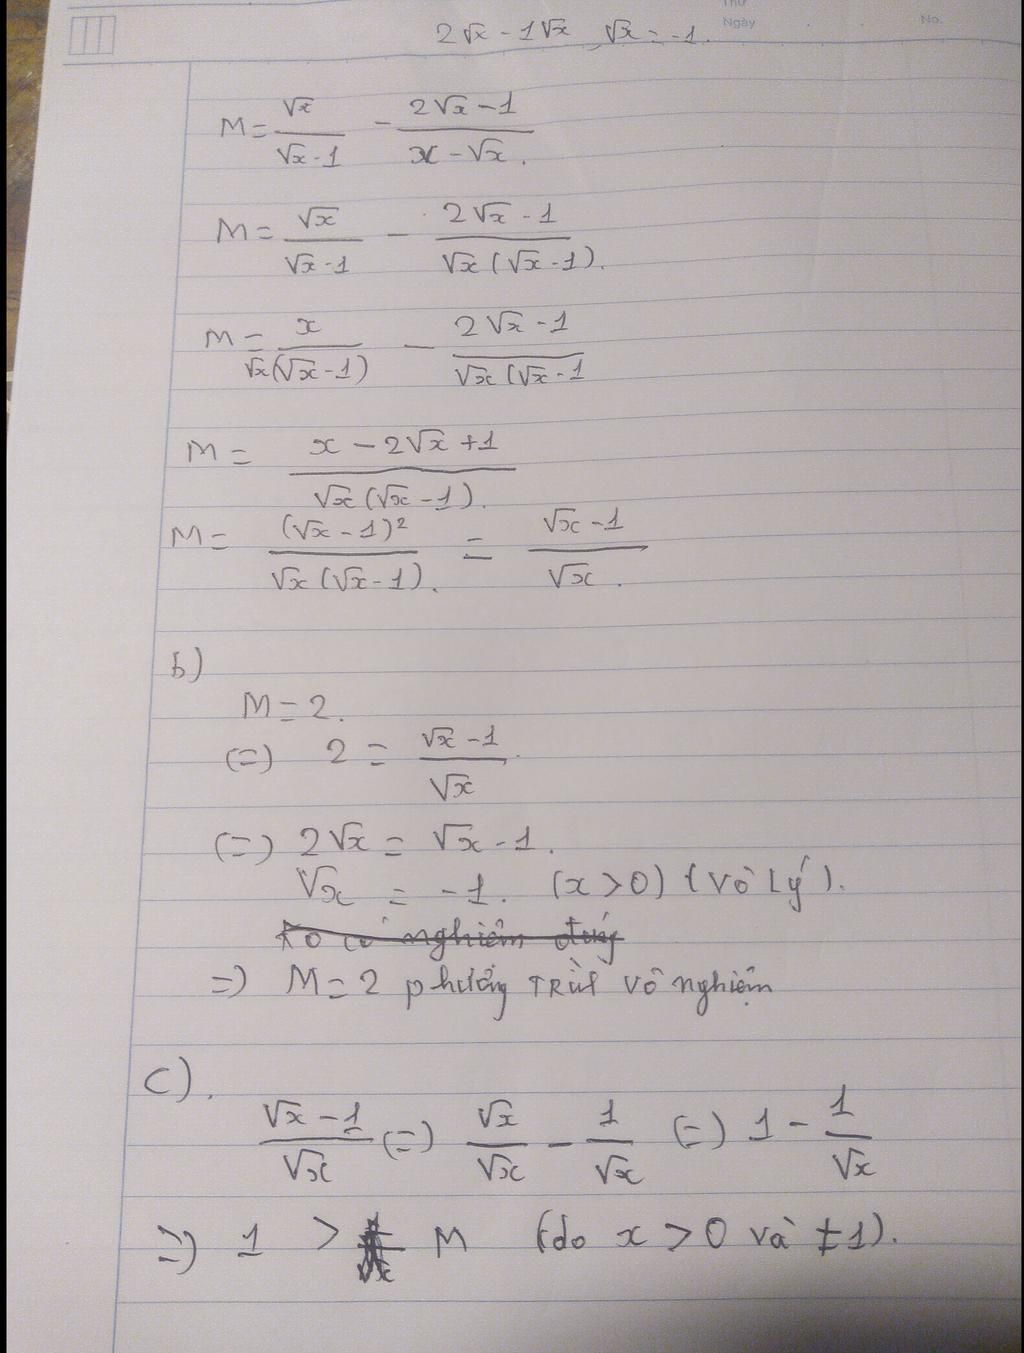 Thứ
Ngày
No.
2√x - 1√x , √x = -1.
M = √x / (√x - 1) - (2√x - 1) / (x - √x).
M = √x / (√x - 1) - (2√x - 1) / (√x (√x - 1)).
M = x / (√x(√x - 1)) - (2√x - 1) / (√x (√x - 1
M = (x - 2√x + 1) / (√x (√x - 1)).
M = (√x - 1)² / (√x (√x - 1)). = (√x - 1) / √x.
b)
M = 2.
(=) 2 = (√x - 1) / √x.
(=) 2√x = √x - 1.
√x = -1. (x > 0) (vô lý).
=) M = 2 phương trình vô nghiệm
c).
(√x - 1) / √x (=) √x / √x - 1 / √x (=) 1 - 1 / √x
=) 1 > M (do x > 0 và ≠ 1).